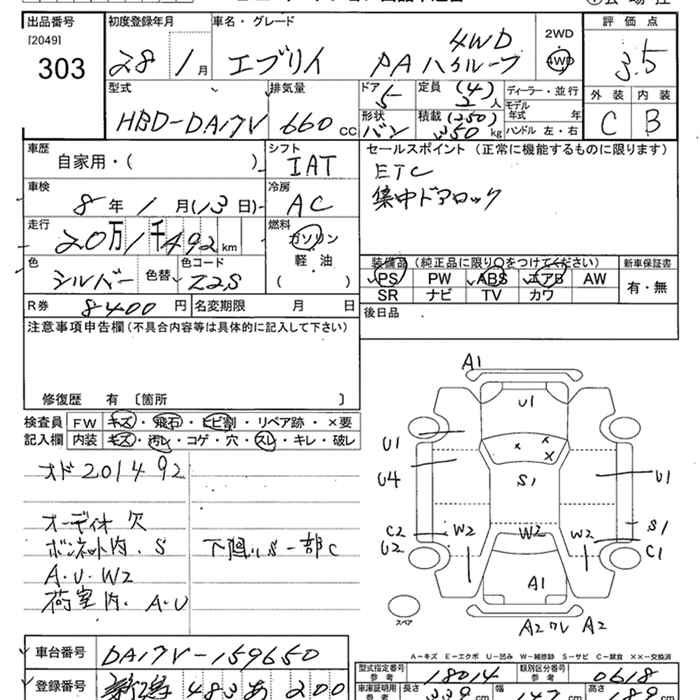 出品番号 初度登録年月 車名・グレード 評価点
[2049]
303
28年 1月 エブリイ 4WD PA ハイルーフ 2WD 4WD 3.5
型式 排気量 ドア 5 定員 (4) 2人 ディーラー・並行 外装 内装
HBD-DA17V 660 cc 形状 バン 積載 (250) 350 kg モデル年式 年 ハンドル 左・右 C B
車歴 自家用・( ) シフト IAT
セールスポイント (正常に機能するものに限ります)
ETC
集中ドアロック
車検 8年 1月(13日) 冷房 AC
走行 20万1千492 km 燃料 ガソリン 軽・油 ( )
色 シルバー 色替 色コード Z2S
装備品 (純正品に限り○をつけてください) 新車保証書
PS PW ABS エアB AW 有・無
SR ナビ TV カワ
R券 8400円 名変期限 月 日
後日品
注意事項申告欄 (不具合内容等は具体的に記入して下さい)
修復歴 有 〔箇所 〕
検査員記入欄 FW キズ・飛石・ヒビ割・リペア跡・×要
内装 キズ・汚レ・コゲ・穴・スレ・キレ・破レ
オド201492
オーディオ欠
ボンネット内・S 下廻りS一部C
A・U・W2
荷室内・A・U
A1
U1
U1
U4 S1 U1
C2 W2 W2 W2 S1
U2 C1
A1
スペア
A2 A2
A-キズ E-エクボ U-凹み W-補修跡 S-サビ C-腐食 ××-交換済
車台番号 DA17V-159650
型式指定番号 参考 18014 類別区分番号 参考 0618
登録番号 新潟 483 あ 200
車庫証明用 参考 長さ 339 cm 幅 147 cm